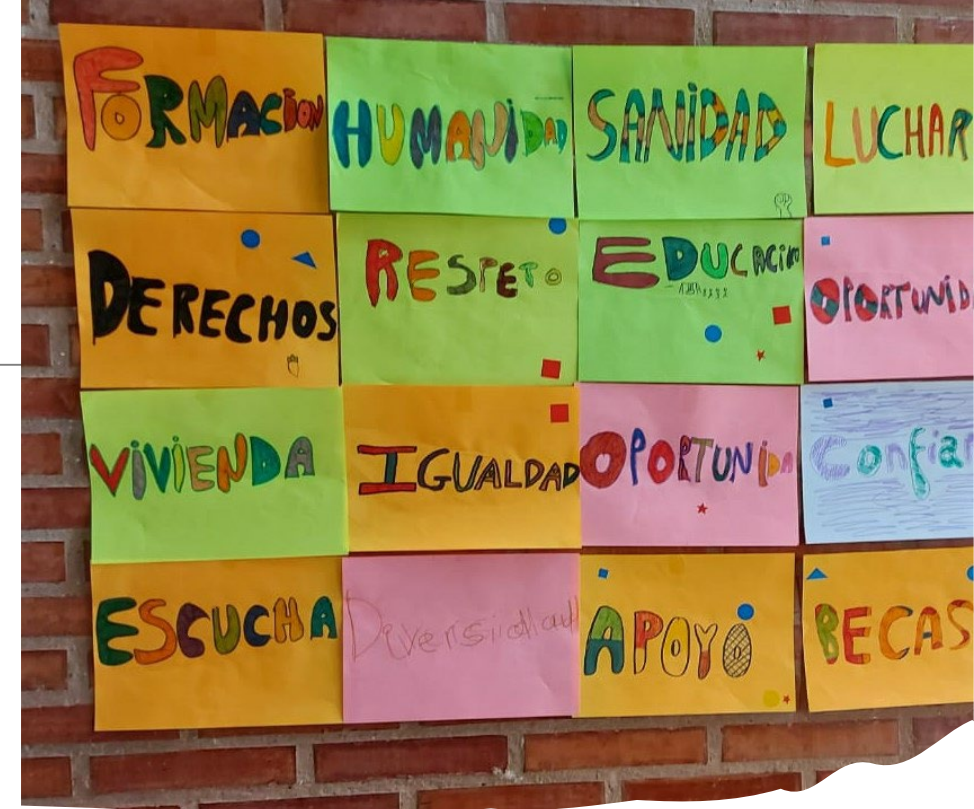 FORMACION HUMANIDAD SANIDAD LUCHAR
DERECHOS RESPETO EDUCACIÓN OPORTUNID
VIVIENDA IGUALDAD OPORTUNIDA Confian
ESCUCHA Diversidad APOYO BECAS